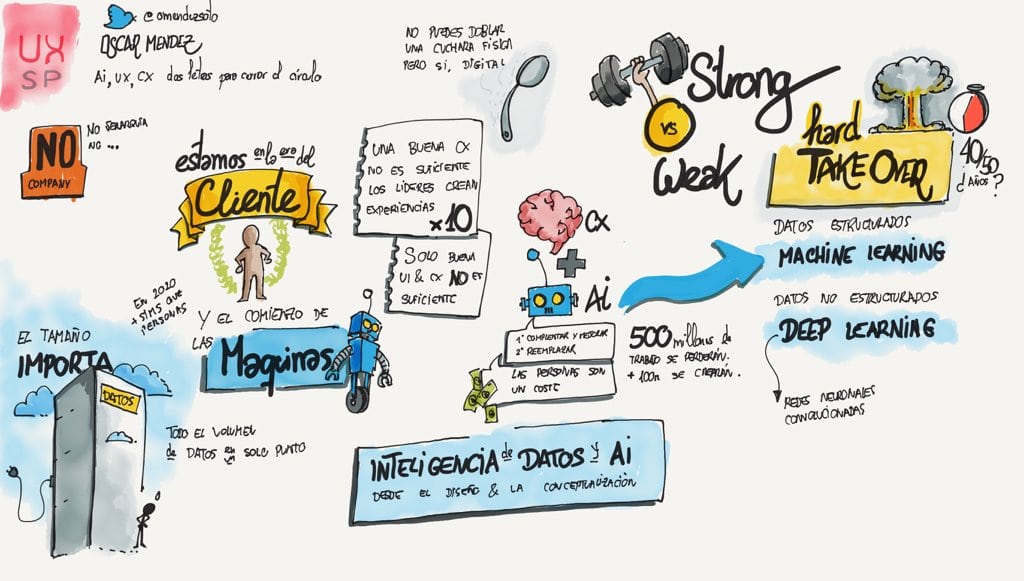 UX
SP
@omendezsoto
OSCAR MENDEZ
Ai, UX, CX dos letras para cerrar el círculo
NO
COMPANY
NO JERARQUIA
NO ...
estamos en la era del
Cliente
EN 2020
+ SIMS QUE
PERSONAS
Y EL COMIENZO DE
LAS
Maquinas
EL TAMAÑO
IMPORTA
DATOS
TODO EL VOLUMEN
de DATOS en un SOLO PUNTO
NO PUEDES DOBLAR
UNA CUCHARA FISICA
PERO SI, DIGITAL
UNA BUENA CX
NO ES SUFICIENTE
LOS LÍDERES CREAN
EXPERIENCIAS
x10
SOLO BUENA
UI & CX NO ES
SUFICIENTE
CX
+
Ai
1º COMPLEMENTAR Y MEJORAR
2º REEMPLAZAR
LAS PERSONAS SON
UN COSTE
500 millones de
TRABAJO SE PERDERÁN.
+ 100m SE CREARÁN.
INTELIGENCIA de DATOS y Ai
DESDE EL DISEÑO & LA CONCEPTUALIZACIÓN
Strong
VS
Weak
hard
TAKE OVER
40/50
¿AÑOS?
DATOS ESTRUCTURADOS
MACHINE LEARNING
DATOS NO ESTRUCTURADOS
DEEP LEARNING
REDES NEURONALES
CONVOLUCIONADAS